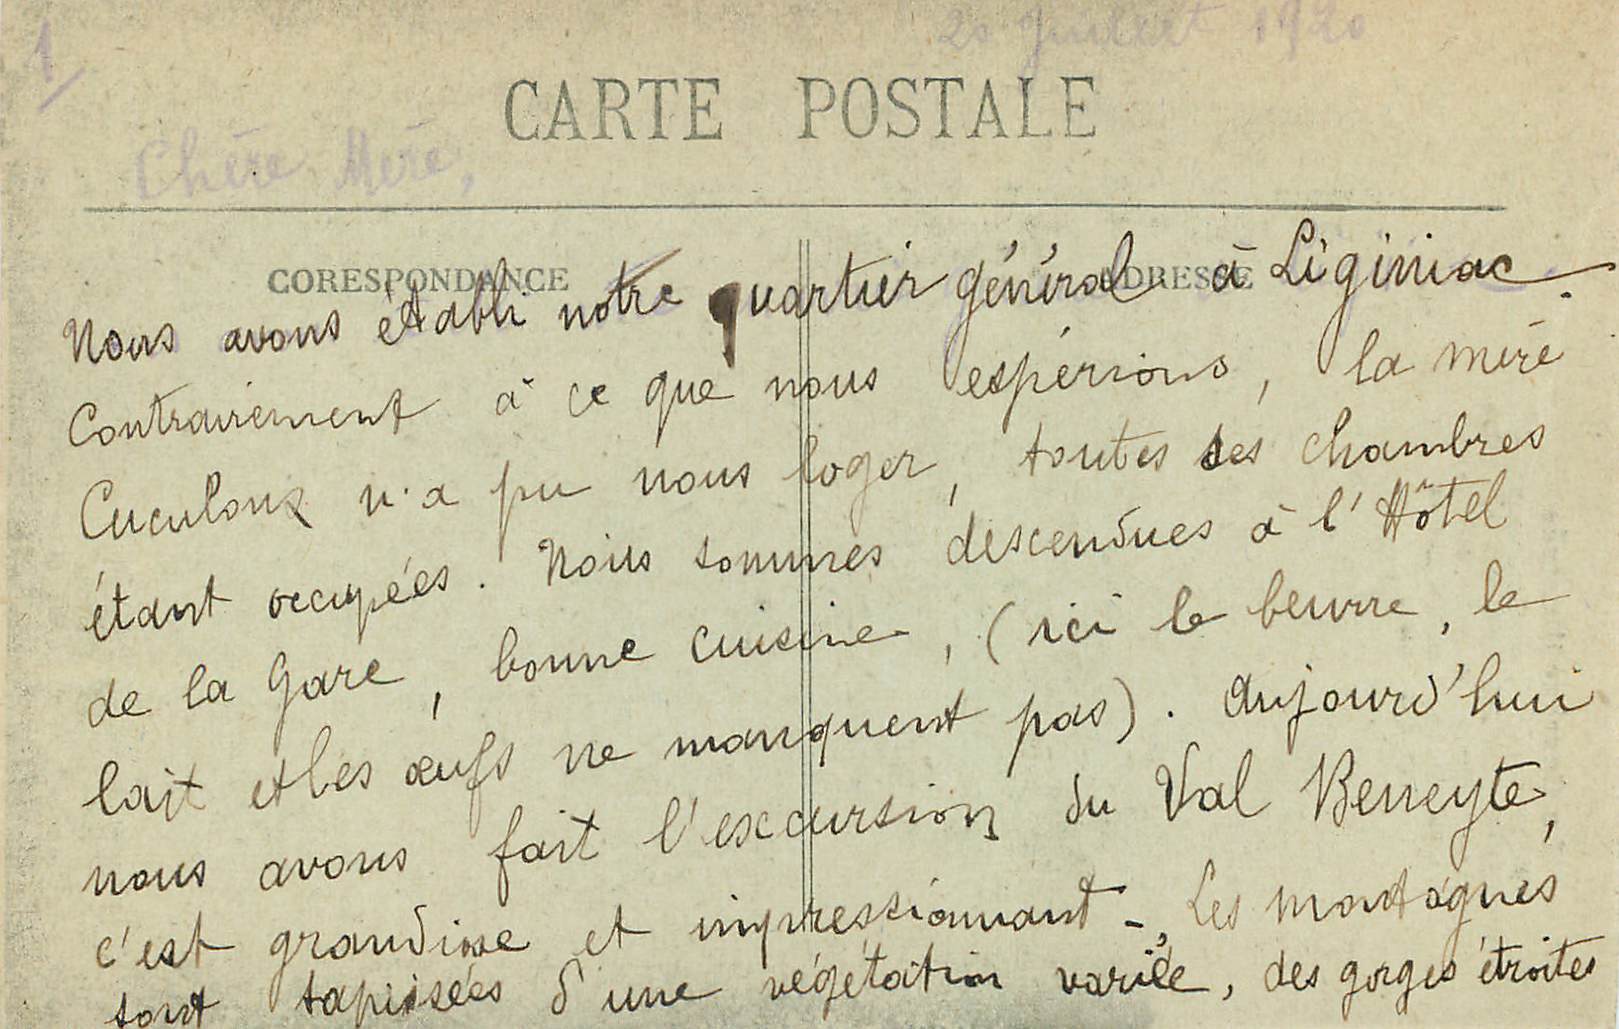 1
20 Juillet 1920
CARTE POSTALE
Chère Mère,
CORESPONDANCE
ADRESSE
Nous avons établi notre quartier général à Liginiac.
Contrairement à ce que nous espérions, la mère
Cuculoux n'a pu nous loger, toutes ses chambres
étant occupées. Nous sommes descendues à l'Hôtel
de la Gare, bonne cuisine, (ici le beurre, le
lait et les œufs ne manquent pas). Aujourd'hui
nous avons fait l'excursion du Val Beneyte,
c'est grandiose et impressionnant -, Les montagnes
sont tapissées d'une végétation variée, des gorges étroites